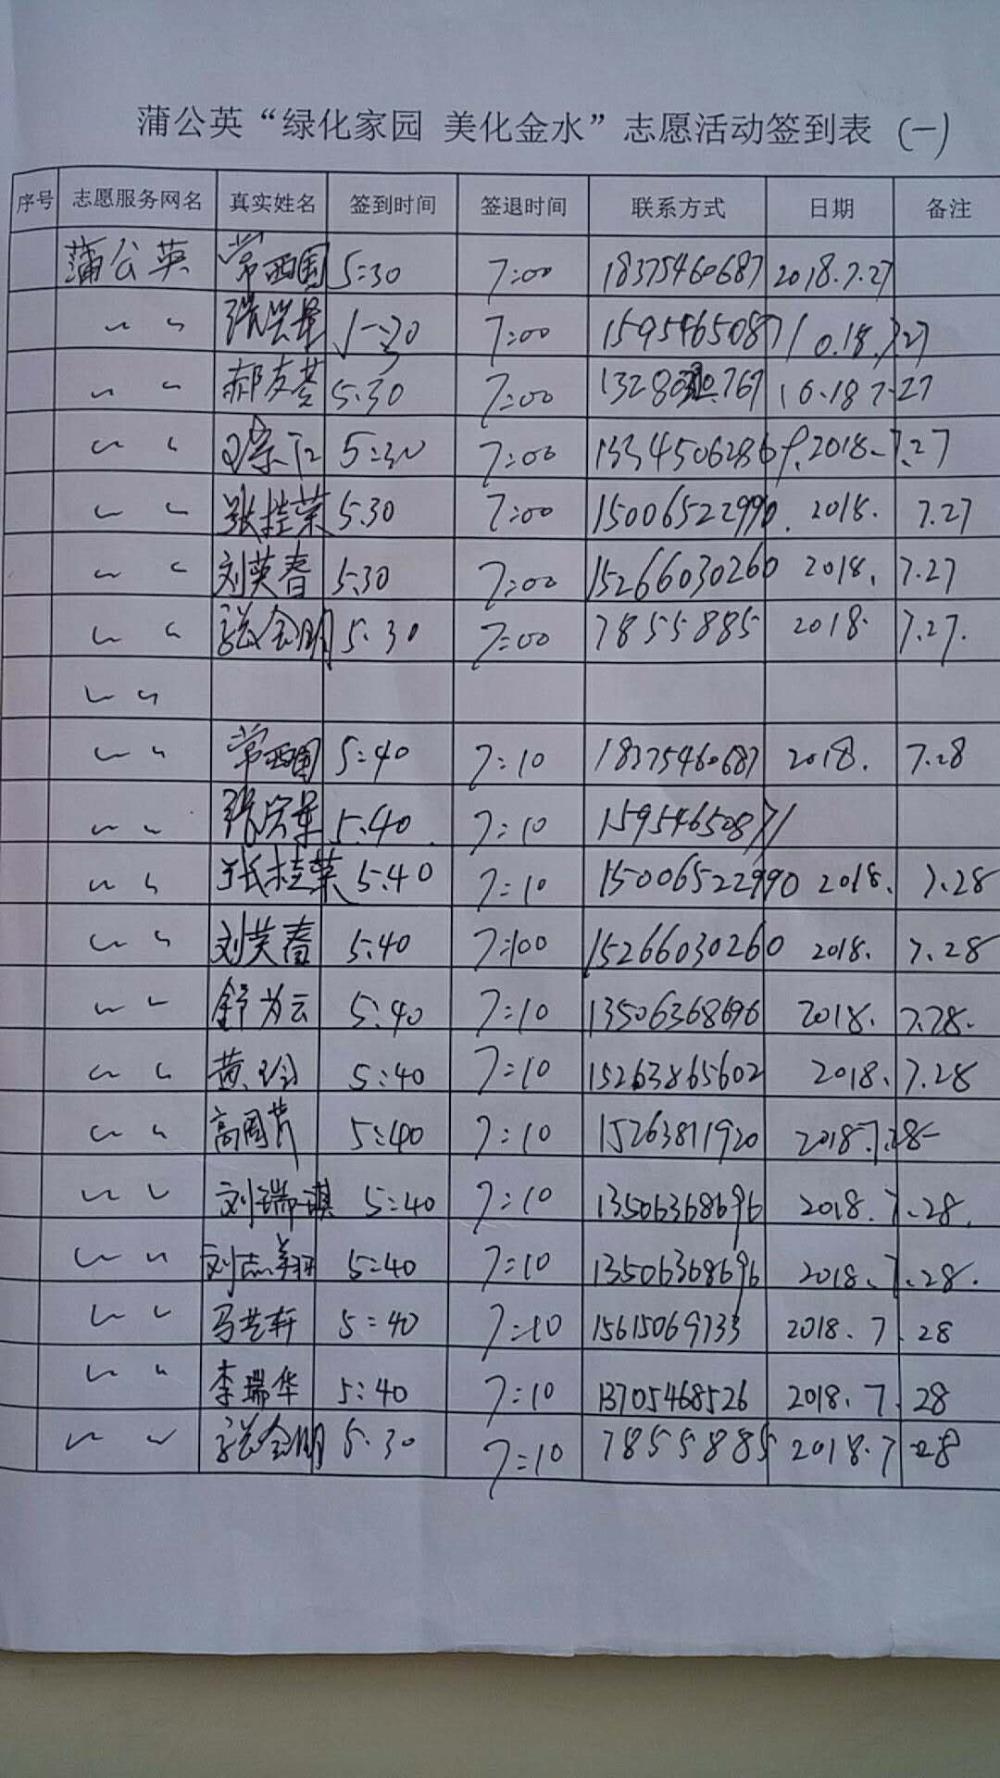 蒲公英“绿化家园 美化金水”志愿活动签到表 (一)
序号 志愿服务网名 真实姓名 签到时间 签退时间 联系方式 日期 备注
蒲公英 常西国 5:30 7:00 18375460687 2018.7.27
〃 7:00 15954650871 7.27
〃 郝友芸 5.30 7:00 7.27
〃 5:30 7:00 2018.7.27
〃 张桂荣 5.30 7:00 15006522990 2018. 7.27
〃 刘英春 5.30 7:00 15266030260 2018. 7.27
〃 张金明 5.30 7:00 7855885 2018. 7.27.
〃
〃 常西国 5:40 7:10 18375460687 2018. 7.28
〃 5:40 7:10 15954650871
〃 张桂荣 5:40 7:10 15006522990 2018. 7.28
〃 刘英春 5:40 7:100 15266030260 2018. 7.28
〃 舒为云 5:40 7:10 13506368696 2018. 7.28.
〃 黄玲 5:40 7:10 15263865602 2018. 7.28
〃 高国芹 5:40 7:10 15263811920 2018.7.28
〃 刘瑞琪 5:40 7:10 13506368696 2018.7.28.
〃 刘志翔 5:40 7:10 13506368696 2018.7.28.
〃 马艺轩 5:40 7:10 15615069733 2018.7.28
〃 李瑞华 5:40 7:10 13705468526 2018.7.28
〃 张金明 5.30 7:10 7855885 2018.7.28